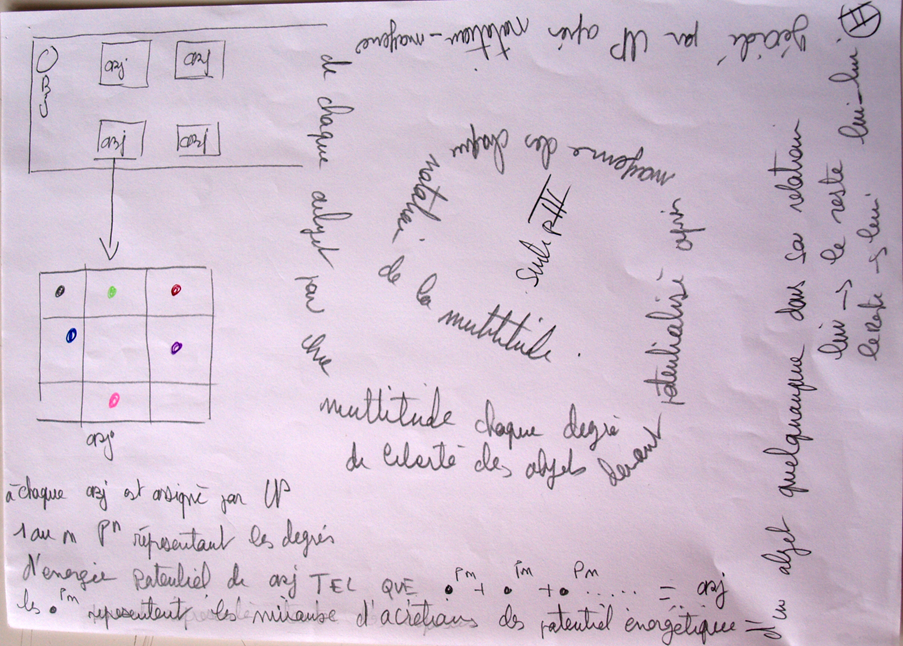 OBJ
obj
obj
obj
obj
obj
à chaque obj est assigné par UP
1 au n Pⁿ répresentant les degrés
d'energie potentiel de obj TEL QUE •Pm + •Pm + •Pm ..... = obj
les •Pm representent les d'acretians des potentiel énergétique =
d'un objet quelquanque dans sa relation
lui → le reste lui – lui
le reste → lui
H
décidé par UP après notation – moyenne
de chaque objet par che
multitude chaque degré
de liberté des objets devant potentialisé après
moyenne des chaque
notation de la multitude.
III